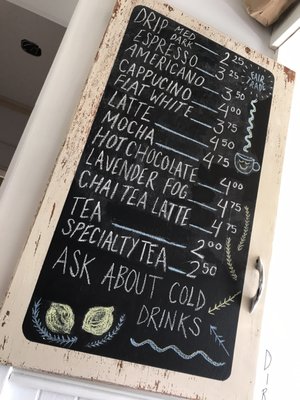 DRIP MED DRK 2.25
ESPRESSO 3.25
AMERICANO 3.50
CAPPUCINO 4.00
FLAT WHITE 3.75
LATTE 4.50
MOCHA 4.75
HOT CHOCOLATE 4.00
LAVENDER FOG 4.75
CHAI TEA LATTE 4.75
TEA 2.00
SPECIALTY TEA 2.50
ASK ABOUT COLD
DRINKS